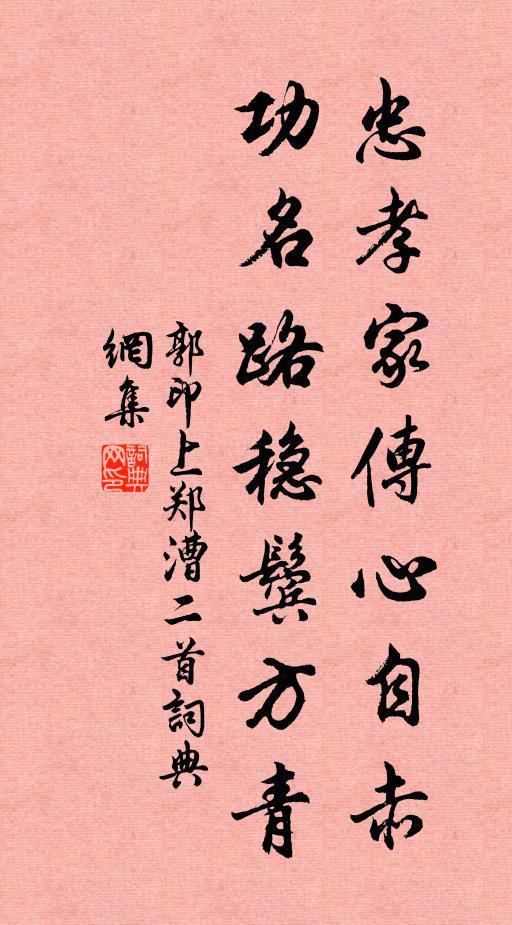 忠孝家傳心自赤
功名路稳鬓方青
郭印上郑漕二首詞典
網集
詞典網印